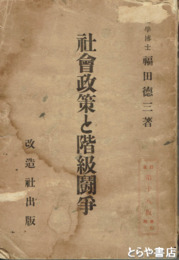 學博士 福田徳三著
社會政策と階級鬪爭
改造社出版
とらや書店